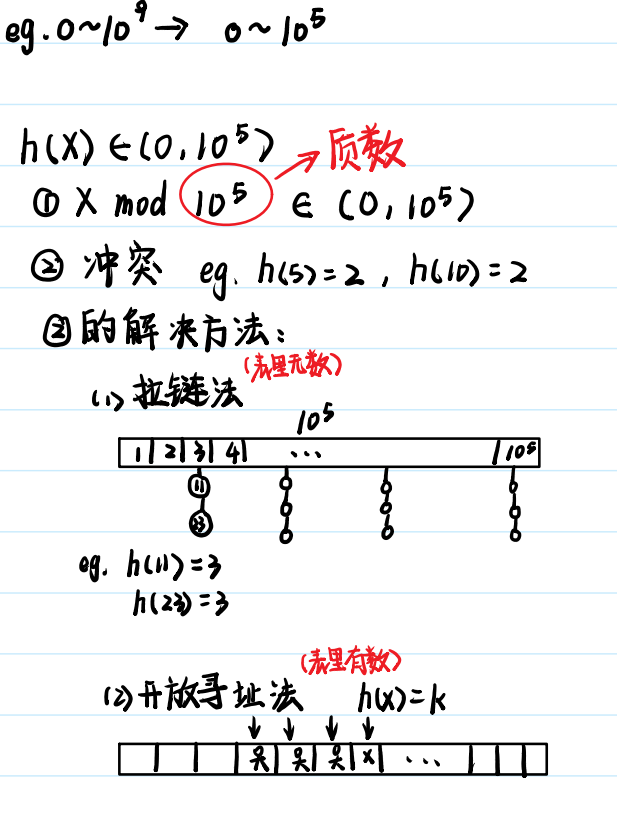 eg. 0~10⁹ → 0~10⁵
h(x) ∈ (0, 10⁵) 质数
① X mod 10⁵ ∈ (0, 10⁵)
② 冲突 eg. h(5)=2, h(10)=2
②的解决方法:
(表里无数)
(1) 拉链法
10⁵
1 2 3 4 ... 10⁵
11
23
eg. h(11)=3
h(23)=3
(表里有数)
(2) 开放寻址法 h(x)=k
x ...